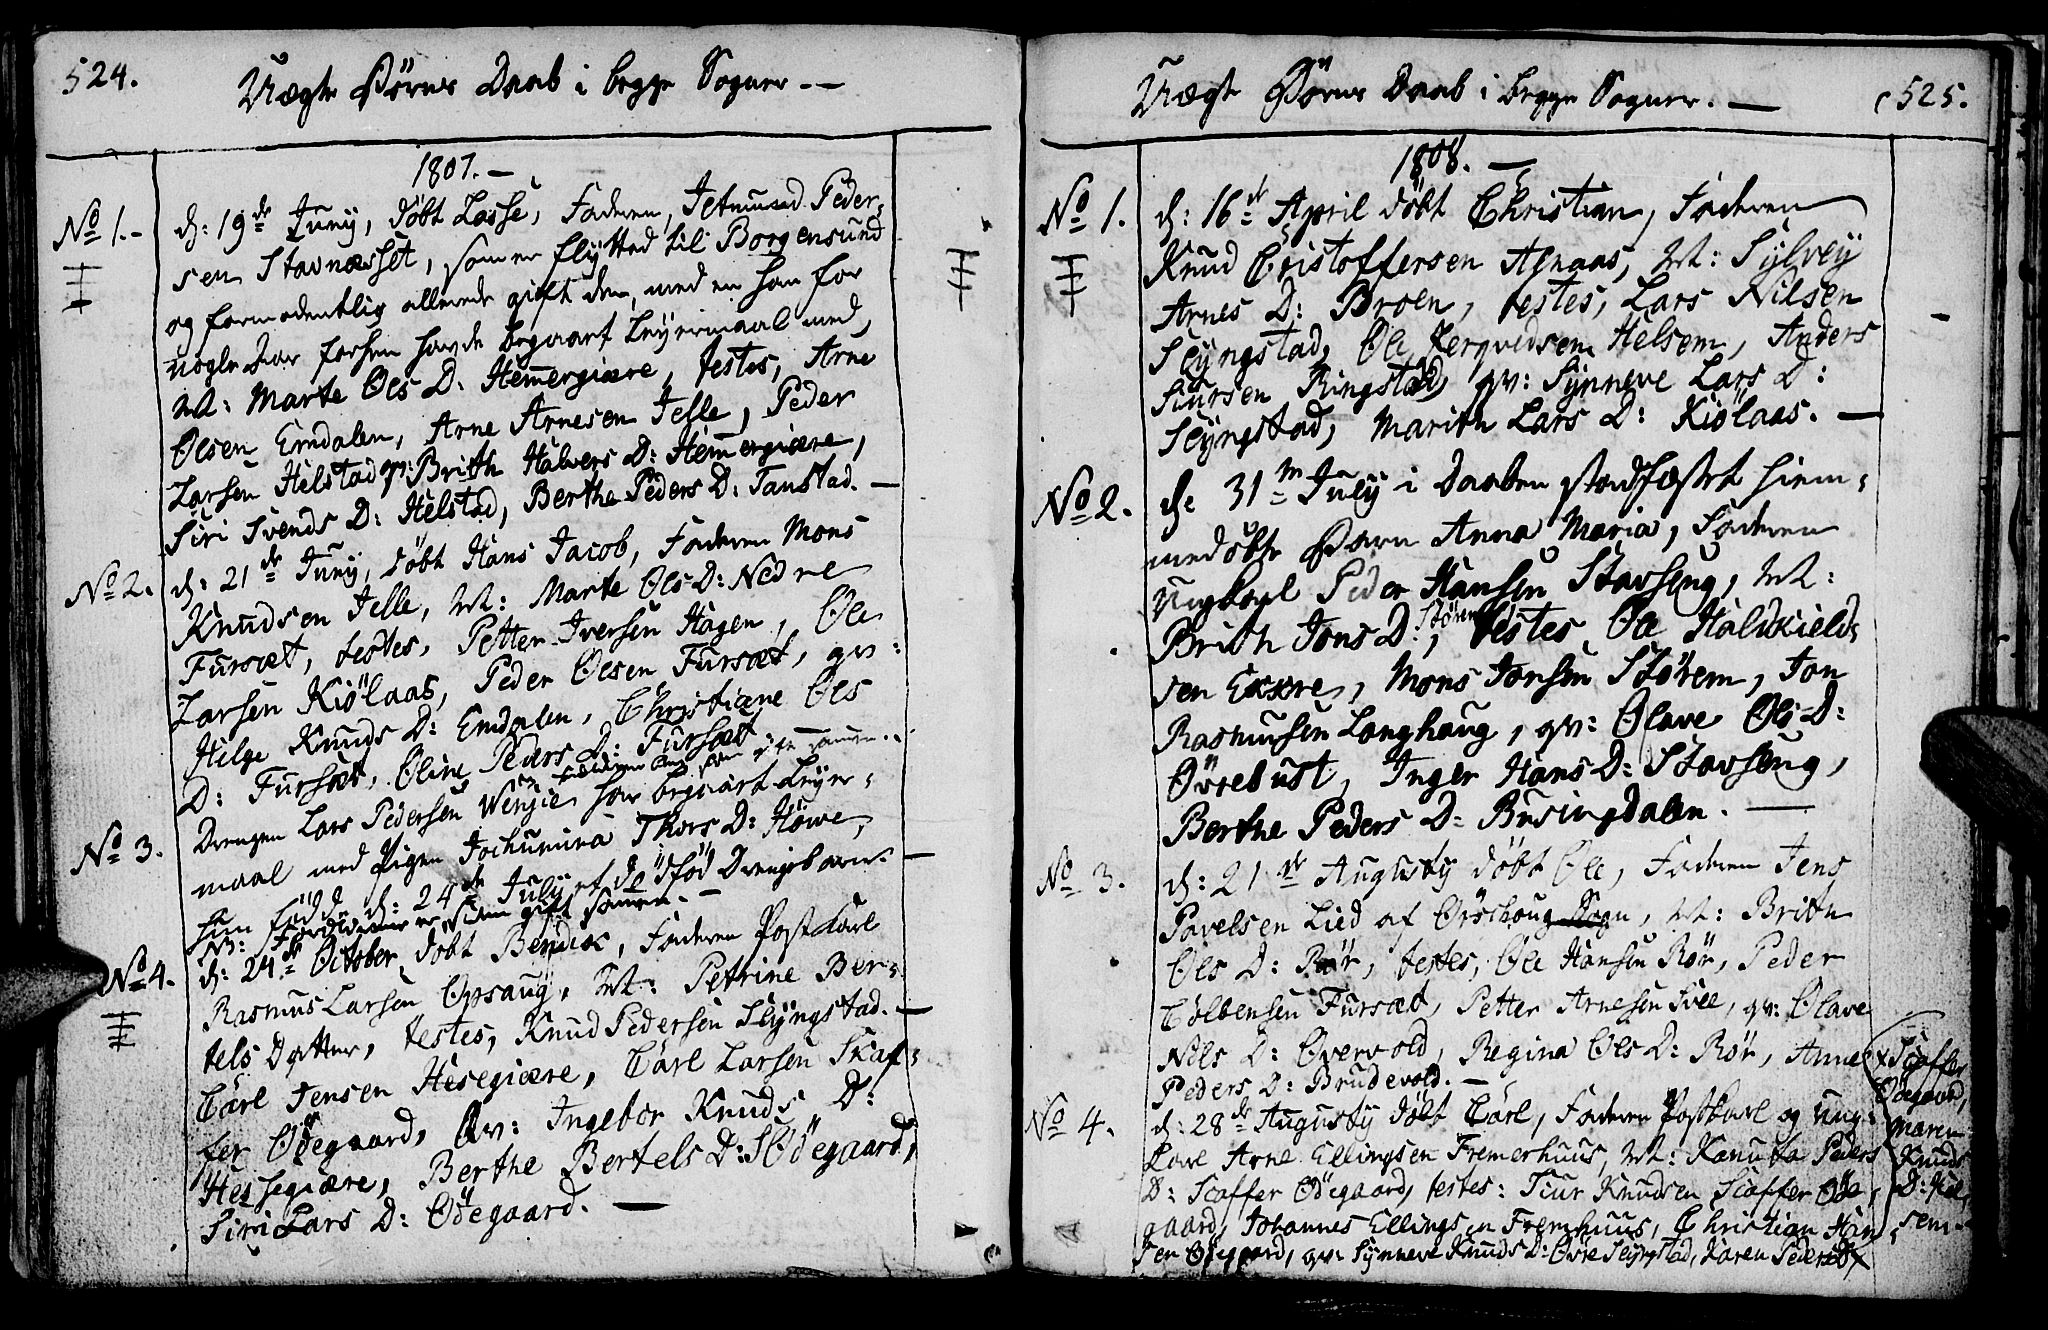 524.
Uægte Børns Daab i begge Sogner. —
1807. —
No 1. -
d: 19de Juny, döbt Lasse, Faderen, Jetmund Peder-
sen Stavnæsset, som er flytted til Borgensund
og formodentlig allerede gift den, med en han for
nogle Aar forhen havde begaaet Leyermaal med,
M: Marte Ols D: Hemmergiære, testes, Arne
Olsen Emdalen, Arne Arnesen Jelle, Peder
Larsen Helstad, qv: Brith Halvers D: Hemmergiære,
Siri Svends D: Helstad, Berthe Peders D: Tanstad. —
No 2.
d: 21de Juny, döbt Hans Jacob, Faderen Mons
Knudsen Jelle, M: Marte Ols D: Nedre
Fursæt, testes, Petter Iversen Hagen, Ole
Larsen Kiölaas, Peder Olsen Fursæt, qv:
Helge Knuds D: Emdalen, Christiane Ols
D: Fursæt, Oline Peders D: Fursæt
No 3.
Drengen Lars Pedersen Wenjie, har begaaet Leyer-
maal med Pigen Jochumina Thors D: Höwe,
hun födde d: 24de July et dödfød Drengebarn. —
NB: Forældrene er siden gift sammen. —
No 4.
d: 24de October, döbt Bendix, Faderen Postkarl
Rasmus Larsen Opsaug, M: Petrine Ber-
tels Datter, testes, Knud Pedersen Slyngstad. —
Carl Jensen Hesegiære, Carl Larsen Skaf-
fer Ødegaard, Qv: Ingebor Knuds D:
Hessegiære, Berthe Bertels D: S Ødegaard,
Siri Lars D: Ødegaard. —
Uægte Børns Daab i begge Sogner. —
525.
1808. —
No 1.
d: 16de April döbt Christian, Faderen
Knud Cristoffersen Agnaas, M: Sylvey
Arnes D: Broen, testes, Lars Nilsen
Slyngstad, Ole Jerqvedsen Helsem, Anders
Siursen Ringstad, qv: Synneve Lars D:
Slyngstad, Marith Lars D: Kiölaas. —
No 2.
d: 31te July i Daaben stadfæstet hiem-
medöbte Barn Anna Maria, Faderen
Ungkarl Peder Hansen Stavseng, M:
Brith Jons D: Stórem, testes Ole Haldkield-
sen Exxre, Mons Jonsen Störem, Jon
Rasmusen Langhaug, qv: Olave Ols D:
Øvrebust, Inger Hans D: Stavseng,
Berthe Peders D: Busingdalen. —
No 3.
d: 21de Augusty döbt Ole, Faderen Jens
Pavelsen Lied af Ørschoug Sogn, M: Brith
Ols D: Rör, testes, Ole Hansen Rör, Peder
Colbensen Fursæt, Petter Arnesen Svee, qv: Olave
Nils D: Overvold, Regina Ols D: Rör, Anne
Peders D: Brudevold. —
No 4.
d: 28de Augusty döbt Carl, Faderen Postkarl og Ung-
karl Arne Ellingsen Fremerhuus, M: Kanuta Peders
D: Scaffer Ødegaard, testes: Siur Knudsen Scaffer Øde-
gaard, Johannes Ellingsen Fremhuus, Christian Han-
sen Ødegaard, qv: Synneve Knuds D: Øvre Slyngstad, Karen Peders D
x Scaffer
Ødegaard,
Maren
Knuds
D: Hel-
sem